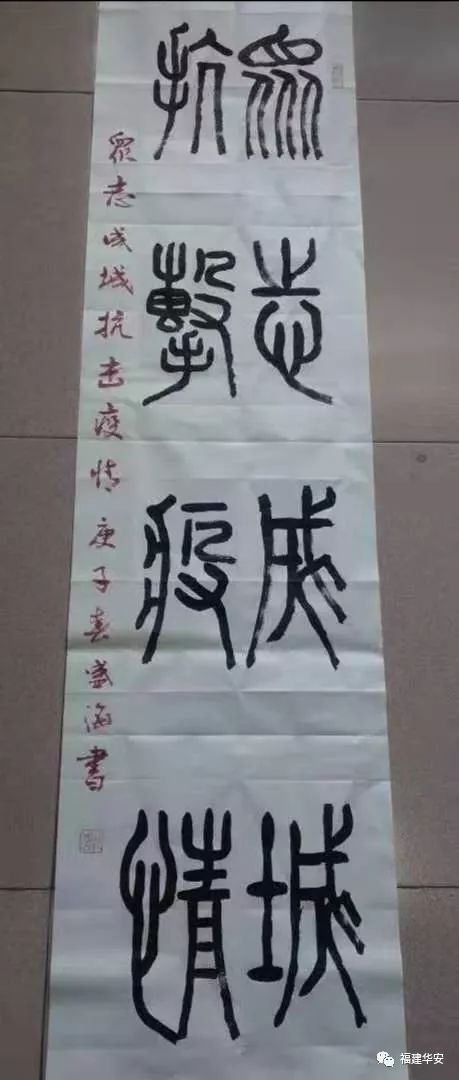 眾志成城
抗擊疫情
眾志成城抗击疫情庚子春盛海書
福建华安